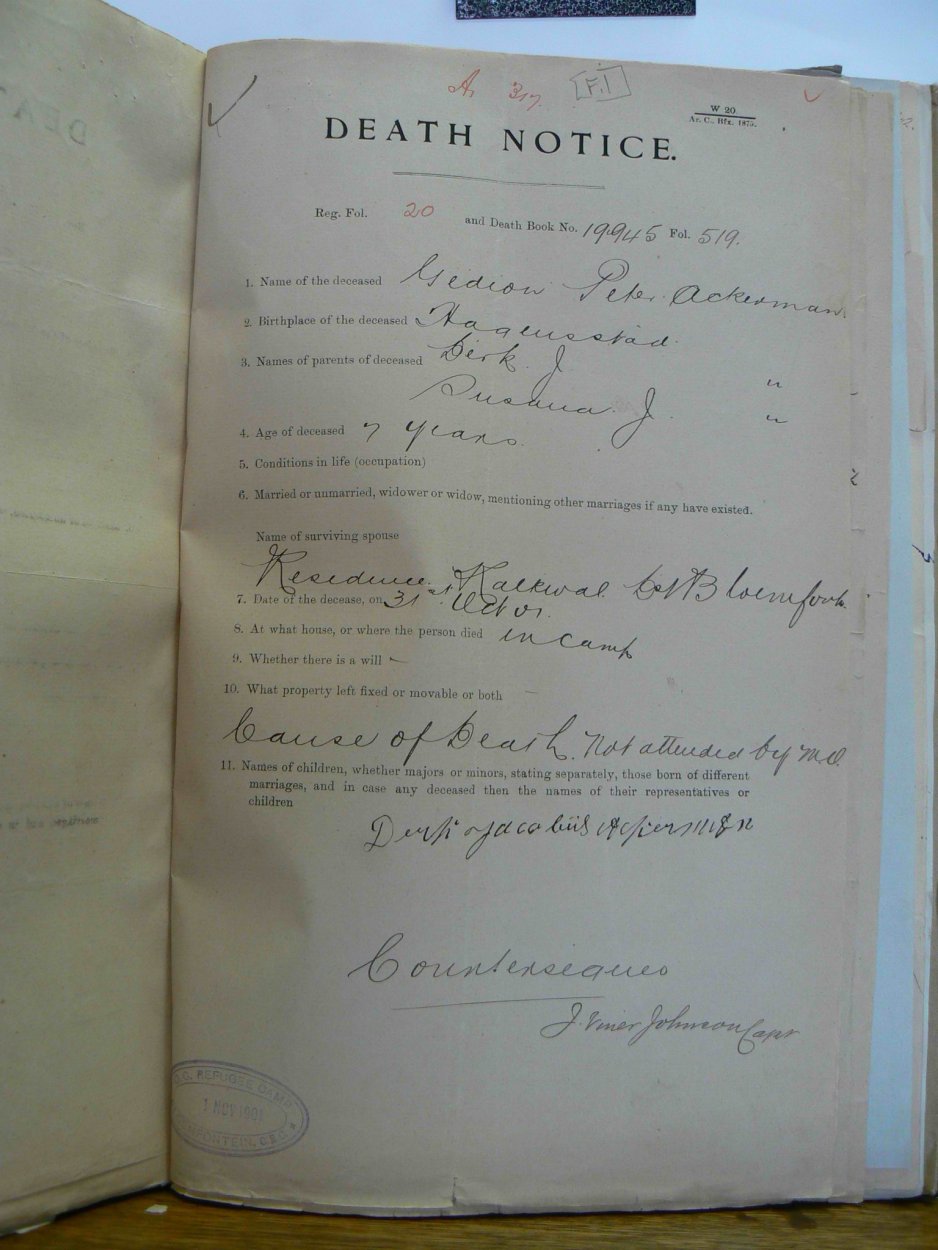 A. 317. F.1
W 20
Ar. C., Bfn. 1875.
DEATH NOTICE.
Reg. Fol. 20 and Death Book No. 19945 Fol. 519.
1. Name of the deceased Gedion Peter Ackerman
2. Birthplace of the deceased Hagensstad
3. Names of parents of deceased Dirk J "
Susana J. "
4. Age of deceased 7 years.
5. Conditions in life (occupation)
6. Married or unmarried, widower or widow, mentioning other marriages if any have existed.
Name of surviving spouse
Residence. Kalkwal Dst Bloemfont.
7. Date of the decease, on 31st Oct 01.
8. At what house, or where the person died in camp
9. Whether there is a will -
10. What property left fixed or movable or both -
Cause of Death. Not attended by M.O.
11. Names of children, whether majors or minors, stating separately, those born of different
marriages, and in case any deceased then the names of their representatives or
children
Derk Jacobus Ackerman
J. Viner Johnson Capt
REFUGEE CAMP
1 NOV 1901